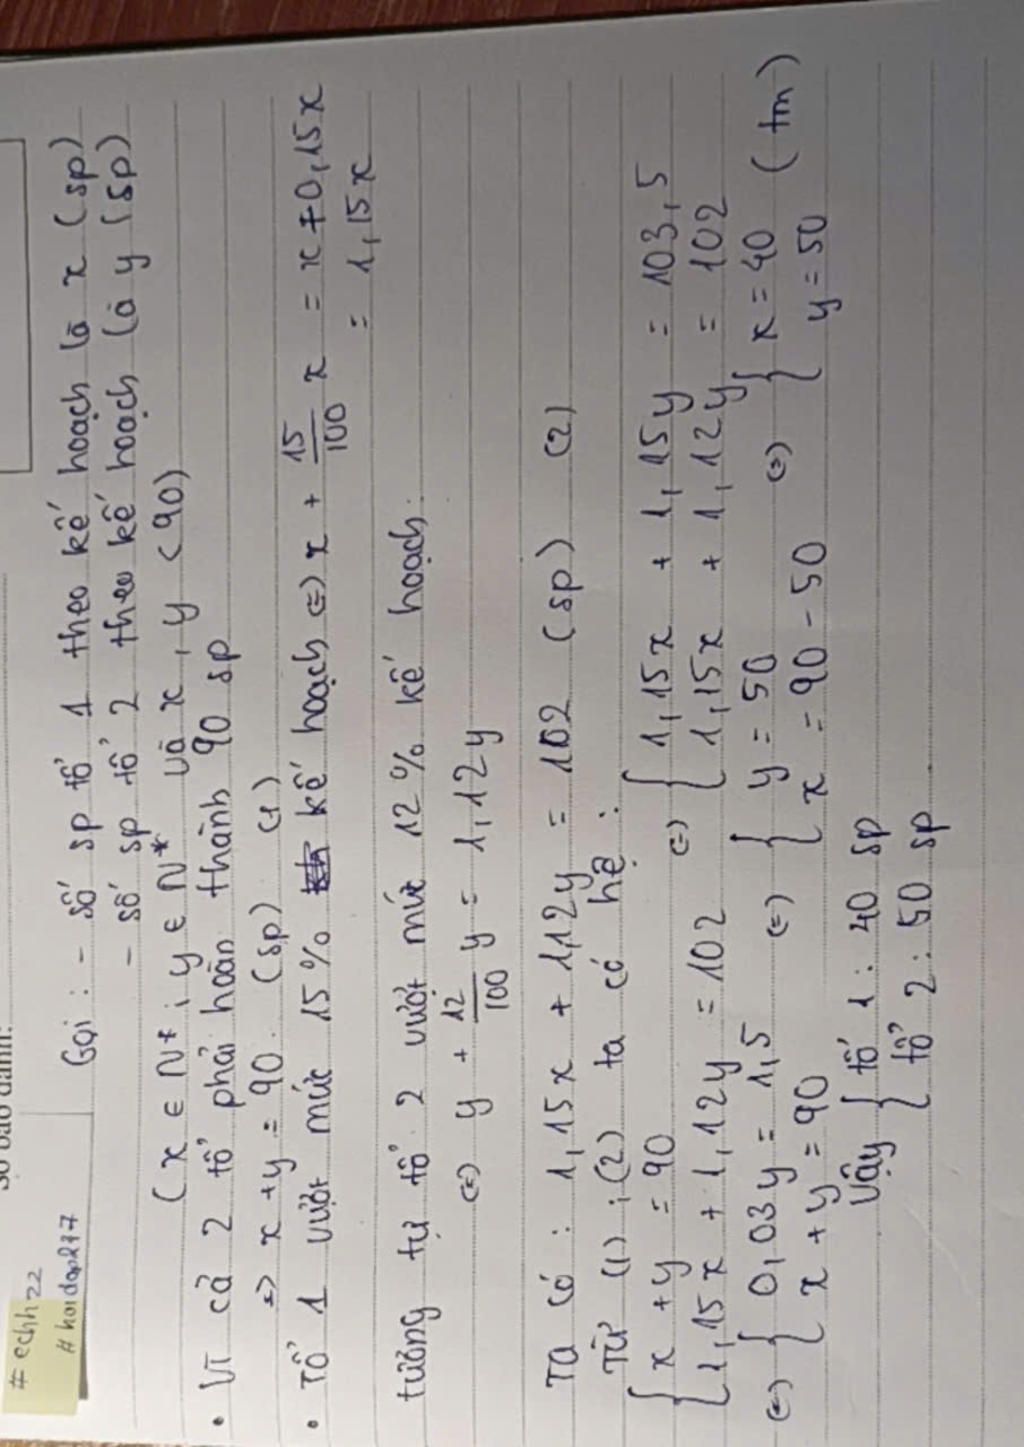 Số báo danh:
#echh22
#hoidap247
Gọi : - số sp tổ 1 theo kế hoạch là x (sp)
- số sp tổ 2 theo kế hoạch là y (sp)
(x ∈ N* ; y ∈ N* và x, y < 90)
• Vì cả 2 tổ phải hoàn thành 90 sp
=> x + y = 90. (sp) (1)
• Tổ 1 vượt mức 15% kế hoạch (=) x + 15/100 x = x + 0,15x
= 1,15x
tương tự tổ 2 vượt mức 12% kế hoạch:
(=) y + 12/100 y = 1,12y
Ta có : 1,15x + 1,12y = 102 (sp) (2)
Từ (1) ; (2) ta có hệ :
{ x + y = 90
{ 1,15x + 1,12y = 102
(=) { 1,15x + 1,15y = 103,5
{ 1,15x + 1,12y = 102
(=) { 0,03y = 1,5
{ x + y = 90
(=) { y = 50
{ x = 90 - 50
(=) { x = 40
{ y = 50
(tm)
Vậy { tổ 1 : 40 sp
{ tổ 2 : 50 sp